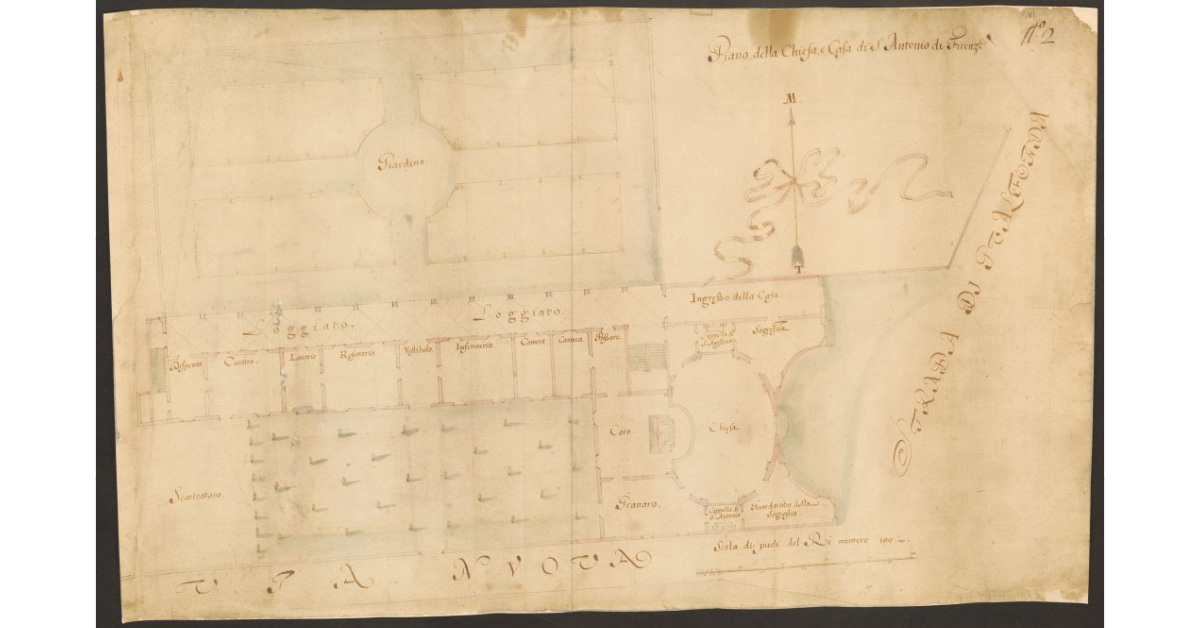 N.º 2
Piano della Chiesa, e Casa di S. Antonio di Firenze
M.
Giardino.
STRADA DI PVALFONDA
T
Ingresso della Casa.
Loggiato.
Loggiato.
Cappella di S. Agostino
Sagrestia.
Cucina.
Lavorio
Refettorio
Vestibolo.
Infermeria
Camera
Camera.
Passare.
Coro.
Chiesa.
Scaricatoio.
Granaro.
Cappella di S. Antonio
Guardaroba della
Sagrestia.
Scala di piedi del Rè numero 100
VIA NVOVA